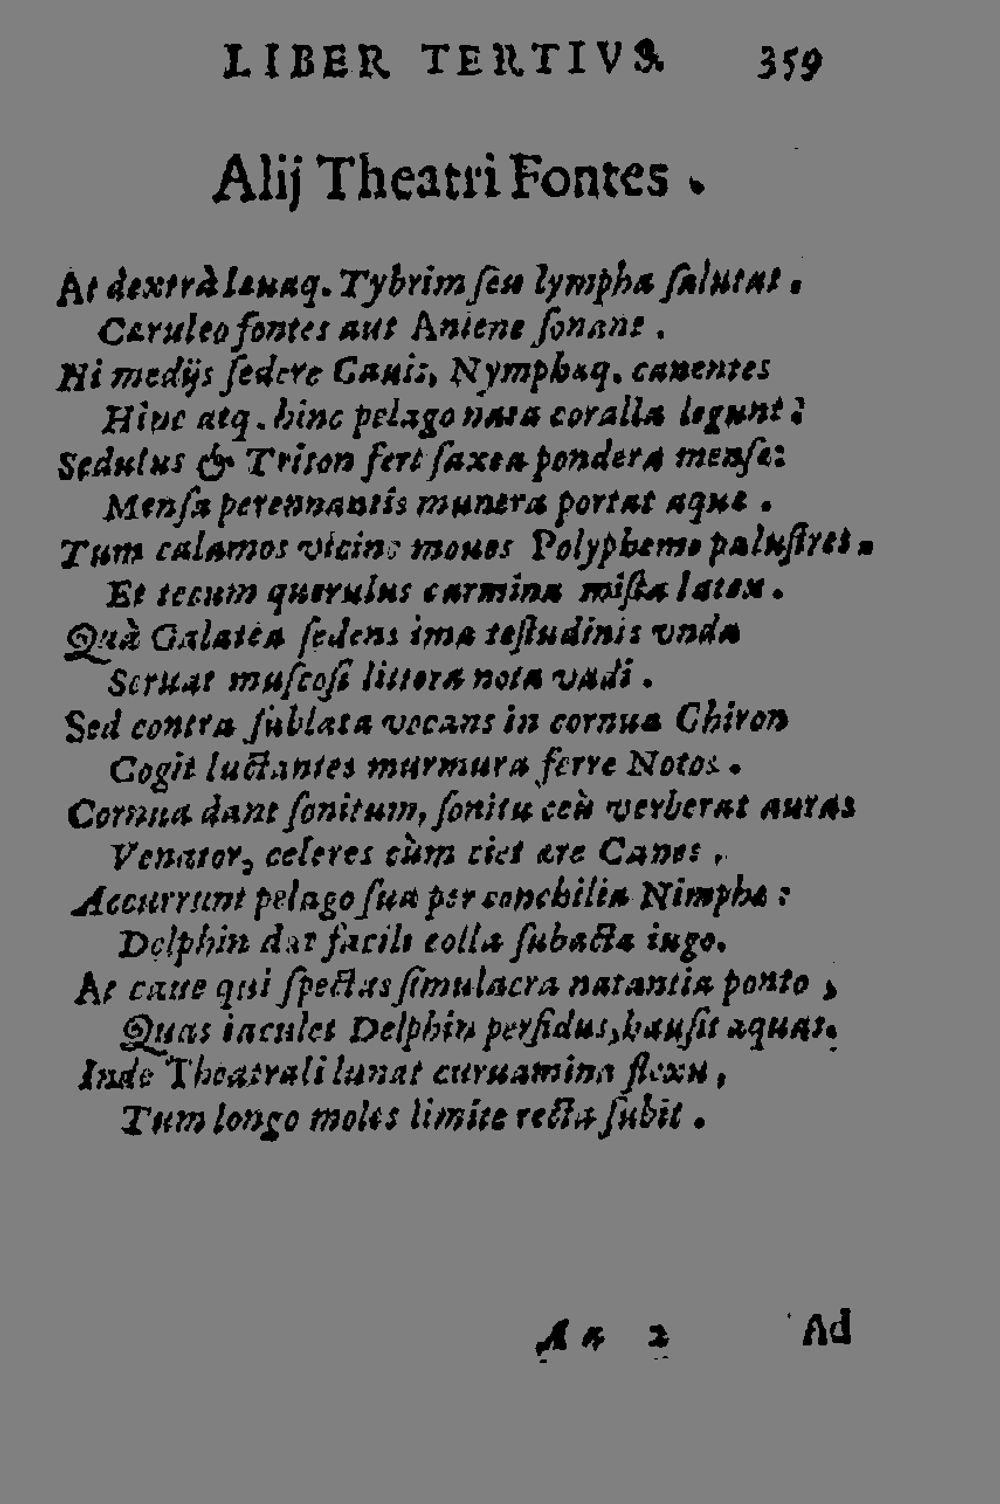 LIBER TERTIVS. 359
Alij Theatri Fontes.
At dextrà leuaq. Tybrim seu lympha salutat,
Cæruleo fontes aut Aniene sonant.
Hi medijs sedere Cauis, Nymphæq. canentes
Hinc atq. hinc pelago nata coralla legunt:
Sedulus & Triton fert saxea pondera mensæ:
Mensa perennantis munera portat aquæ.
Tum calamos vicine moues Polypheme palustres,
Et tecum querulus carmina mista latex.
Quà Galatea sedens ima testudinis vnda
Seruat muscosi littora nota vadi.
Sed contra sublata vocans in cornua Chiron
Cogit luctantes murmura ferre Notos.
Cornua dant sonitum, sonitu ceù verberat auras
Venator, celeres cùm ciet ære Canes,
Accurrunt pelago sua per conchilia Nimphæ:
Delphin dat facili colla subacta iugo.
At caue qui spectas simulacra natantia ponto,
Quas iaculet Delphin perfidus, hausit aquas.
Inde Theatrali lunat curuamina flexu,
Tum longo moles limite recta subit.
Aa 2 Ad